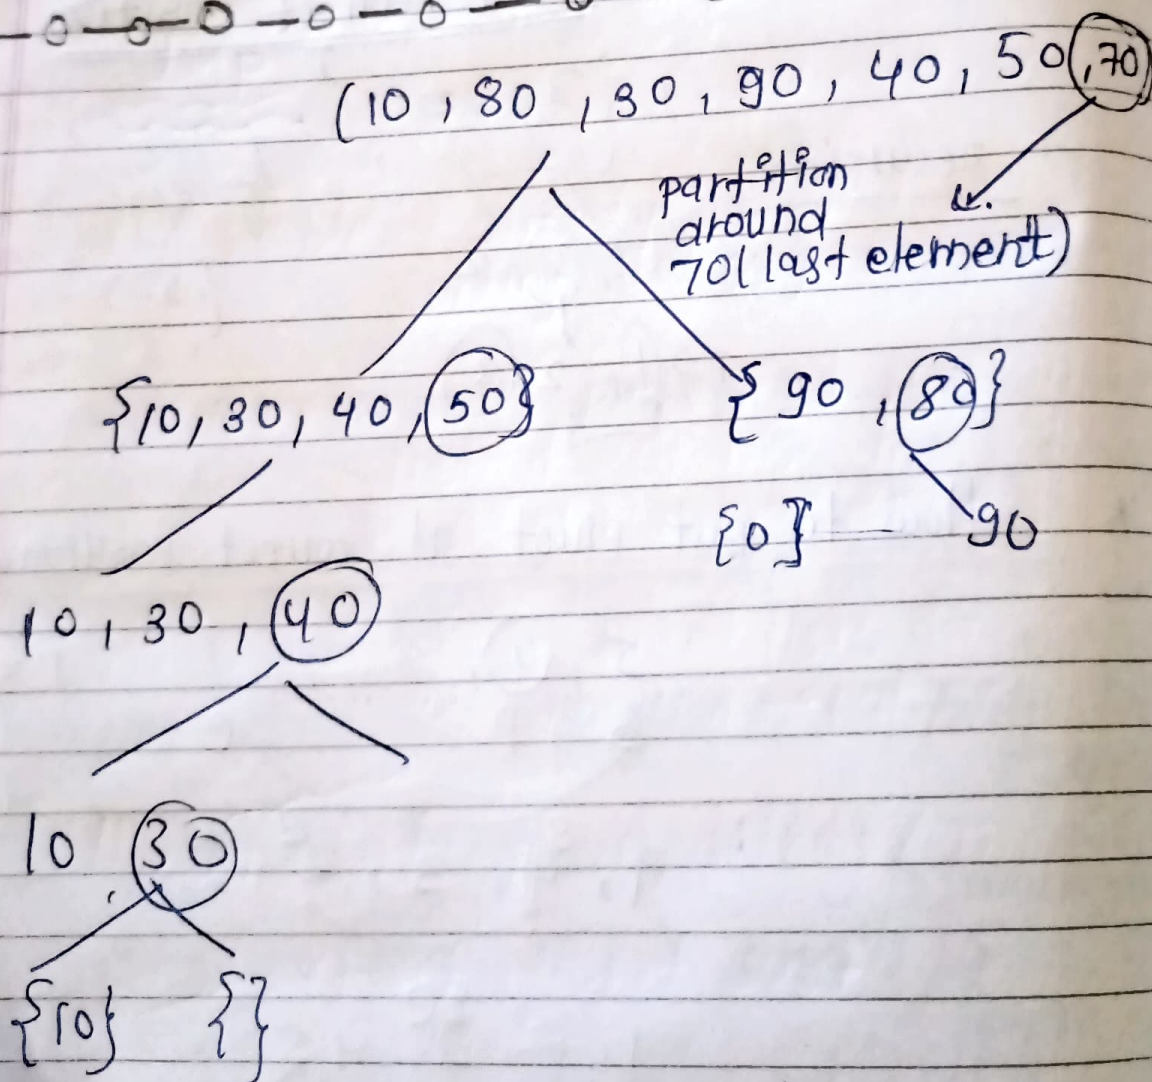 (10 , 80 , 30 , 90 , 40 , 50 , 70
partition
around
70( last element)
{10, 30, 40, 50}
{ 90 , 80}
{0}
90
10, 30, 40
10, 30
{10}
{}